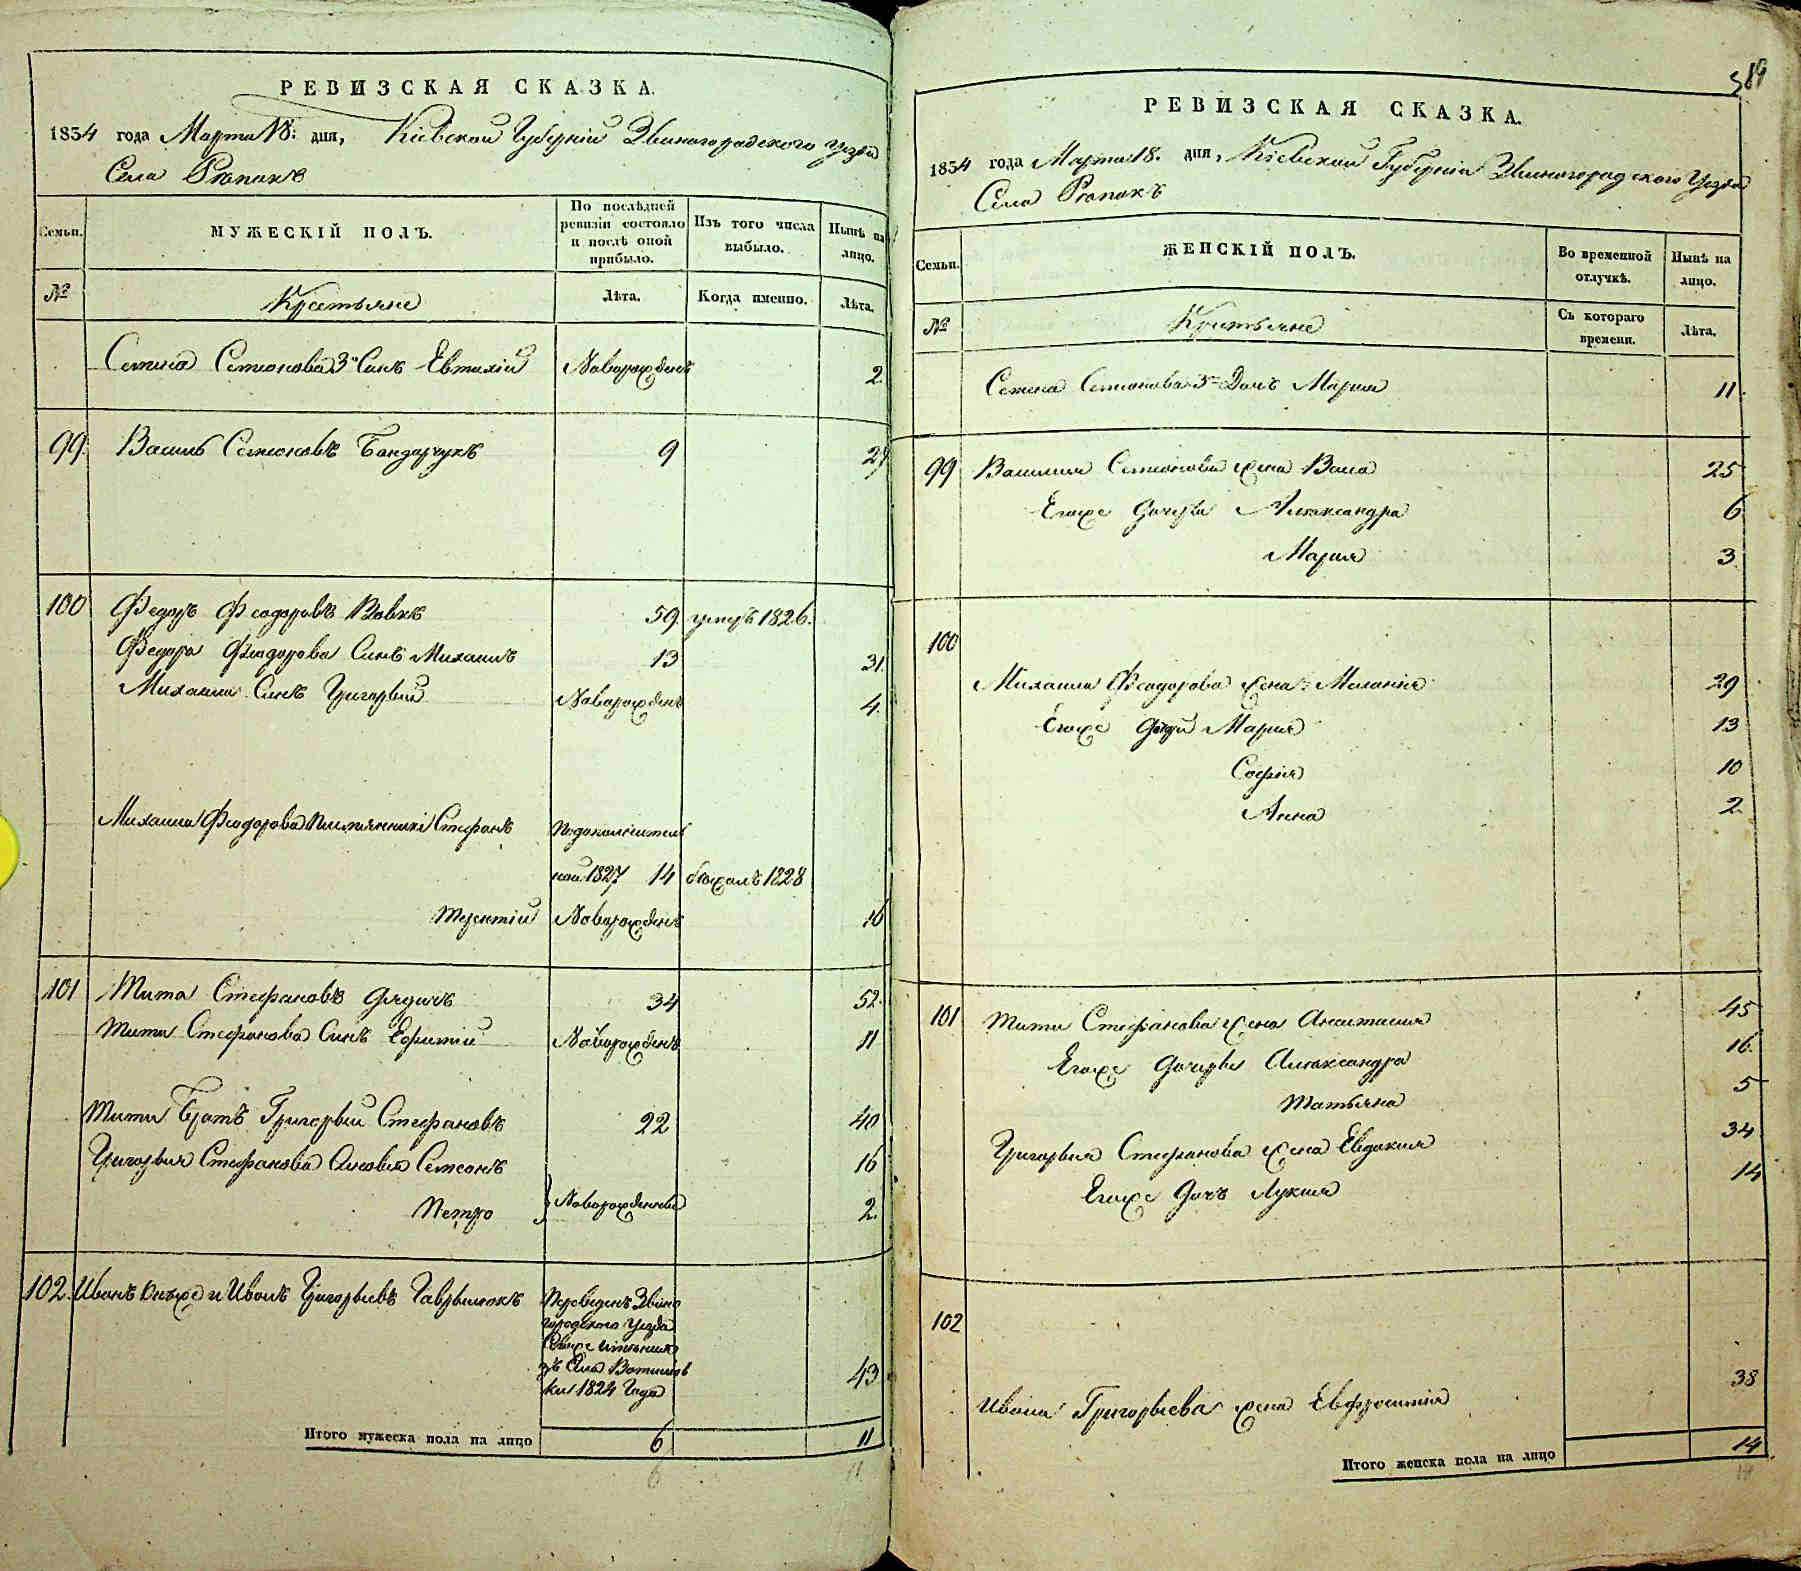 РЕВИЗСКАЯ СКАЗКА.
1834 года Марта 18: дня, Кіевской Губерніи Звиногородского уезда
Села Рѣпокъ
Семьи.
МУЖЕСКІЙ ПОЛЪ.
По послѣдней ревизіи состояло и послѣ оной прибыло.
Изъ того числа выбыло.
Нынѣ на лицо.
№
Крестьяне
Лѣта.
Когда именно.
Лѣта.
Семена Семионова 3й Синъ Евтихій Новорожденъ 2
99. Василь Семионовъ Бондарчукъ 9
100 Федоръ Феодоровъ Вовкъ 59. умеръ 1826.
Федора Феодорова Синъ Михаилъ 13 31.
Михаила Синъ Григорвій Новорожденъ 4.
Михаила Феодорова Стефанъ
1827 14 бежалъ 1828
Терентій Новорожденъ 16
101 Тита Стефановъ 34 52.
Тита Стефанова Синъ Ефимій Новорожденъ 11
Тита Братъ Григорвій Стефановъ 22 40
Григорвия Стефанова Синовья Семеонъ 16
Петро } Новорожденные 2.
102. Иванъ онъже и Иванъ Григорьевъ Гаврилюкъ
Переведенъ Звино
городского уезда
зъ Села
ки 1824 Года 43
Итого мужеска пола на лицо 6 11
6 11
589
РЕВИЗСКАЯ СКАЗКА.
1834 года Марта 18. дня, Кіевской Губерніи Звиногородского Уезда
Села Рѣпокъ
Семьи.
ЖЕНСКІЙ ПОЛЪ.
Во временной отлучкѣ.
Нынѣ на лицо.
№
Крестьяне
Съ котораго времени.
Лѣта.
Семена Семионова 3я Дочъ Мария 11.
99 Василия Семионова жена 25
Егоже дочери Александра 6
Мария 3
100
Михаила Феодорова жена Меланія 29
Егоже Мария 13
Софія 10
Анна 2.
101 Тита Стефанова жена Анастасия 45
Егоже дочери Александра 16.
Татьяна 5
Григорвия Стефанова жена Евдокия 34
Егоже дочъ Лукия 14
102
Ивана Григорьева жена Евфросинія 38
Итого женска пола на лицо 14
14